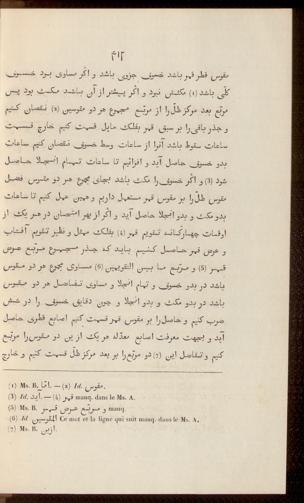 ٤١٢
مقوس قطر قمر باشد خسوف جزویی باشد و اگر مساوی بود خسوف
کلّی باشد (1) مکثش نبود و اگر بیشتر از آن باشد مکث بود پس
مربّع بعد مرکز ظلّ را از مربّع مجموع هر دو مقوسین (2) نقصان کنیم
و جذر باقی را بر سبق قمر بفلک مایل قسمت کنیم خارج قسمت
ساعات سقوط باشد آنرا از ساعات وسط خسوف نقصان کنیم ساعات
بدو خسوف حاصل آید و افزائیم تا ساعات تمام انجلا حاصل
شود (3) و اگر خسوف را مکث باشد بجای مجموع هر دو مقوس فضل
مقوس ظلّ را بر مقوس قمر مستعمل داریم و همین عمل کنیم تا ساعات
بدو مکث و بدو انجلا حاصل آید و اگر از بهر امتحان در هر یک از
اوقات چهارگانه تقویم قمر (4) بفلک ممثل و نظیر تقویم آفتاب
و عرض قمر حاصل کنیم باید که جذر مجموع مربّع عرض
قمر (5) و مربّع ما بین التقویمین (6) مساوی مجموع هر دو مقوس
باشد در بدو خسوف و تمام انجلا و مساوی تفاضل هر دو مقوس
باشد در بدو مکث و بدو انجلا و چون دقایق خسوف را در شش
ضرب کنیم و حاصل را بر مقوس قمر قسمت کنیم اصابع قطری حاصل
آید و بجهت معرفت اصابع معدّله هر یک از این دو مقوس را مربّع
کنیم و تفاضل این (7) دو مربّع را بر بعد مرکز ظلّ قسمت کنیم و خارج
(1) Ms. B. امّا. — (2) Id. مقوس.
(3) Id. آید. — (4) قمر manq. dans le Ms. A.
(5) Ms. B. و مربّع عرض قمر manq.
(6) Id. المقوسین Ce mot et la ligne qui suit manq. dans le Ms. A.
(7) Ms. B. ازین.